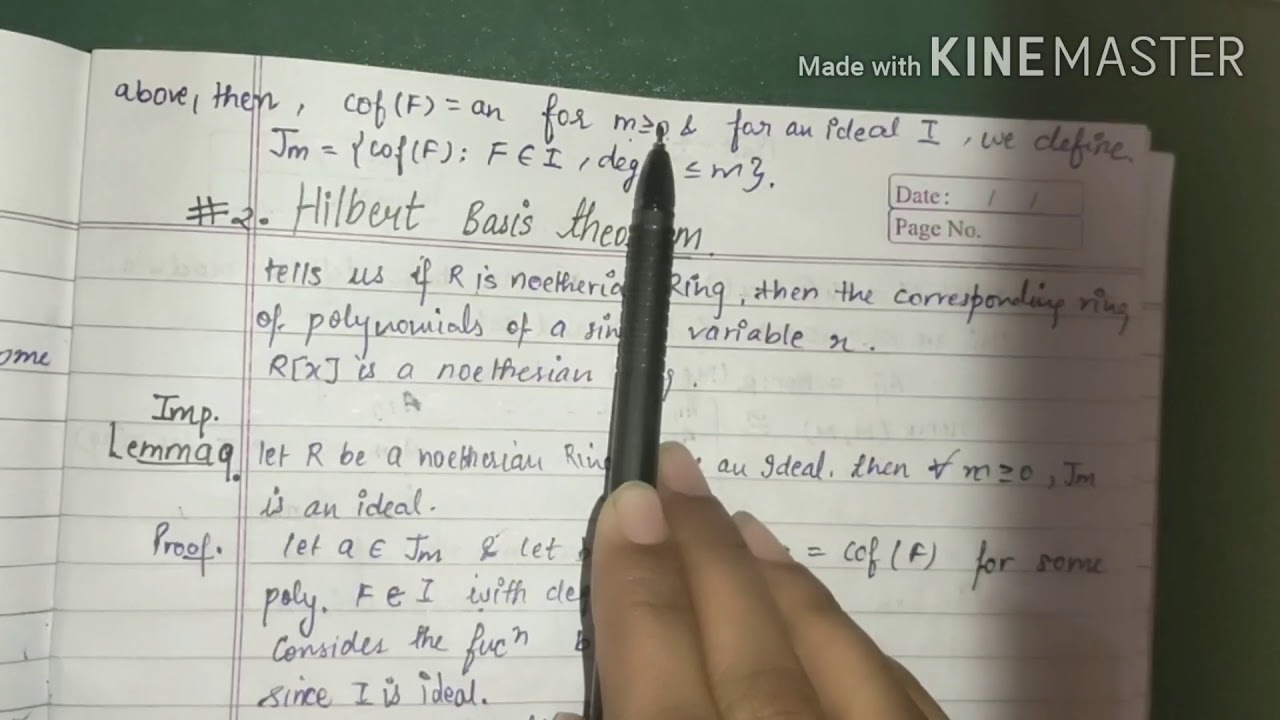 Made with KINEMASTER
above, then, cof(F) = an for m≥0 & for an ideal I, we define
Jm = {cof(F): F ∈ I, deg ≤ m}.
Date: / /
Page No.
#2. Hilbert Basis theorem.
tells us if R is noetherian Ring, then the corresponding ring
of polynomials of a sin variable x.
ome
R[x] is a noetherian
Imp.
Lemma let R be a noetherian Ring an Ideal. then ∀ m ≥ 0, Jm
is an ideal.
Proof. let a ∈ Jm & let = cof(F) for some
poly. F ∈ I with de
Consider the fucⁿ b
since I is ideal.